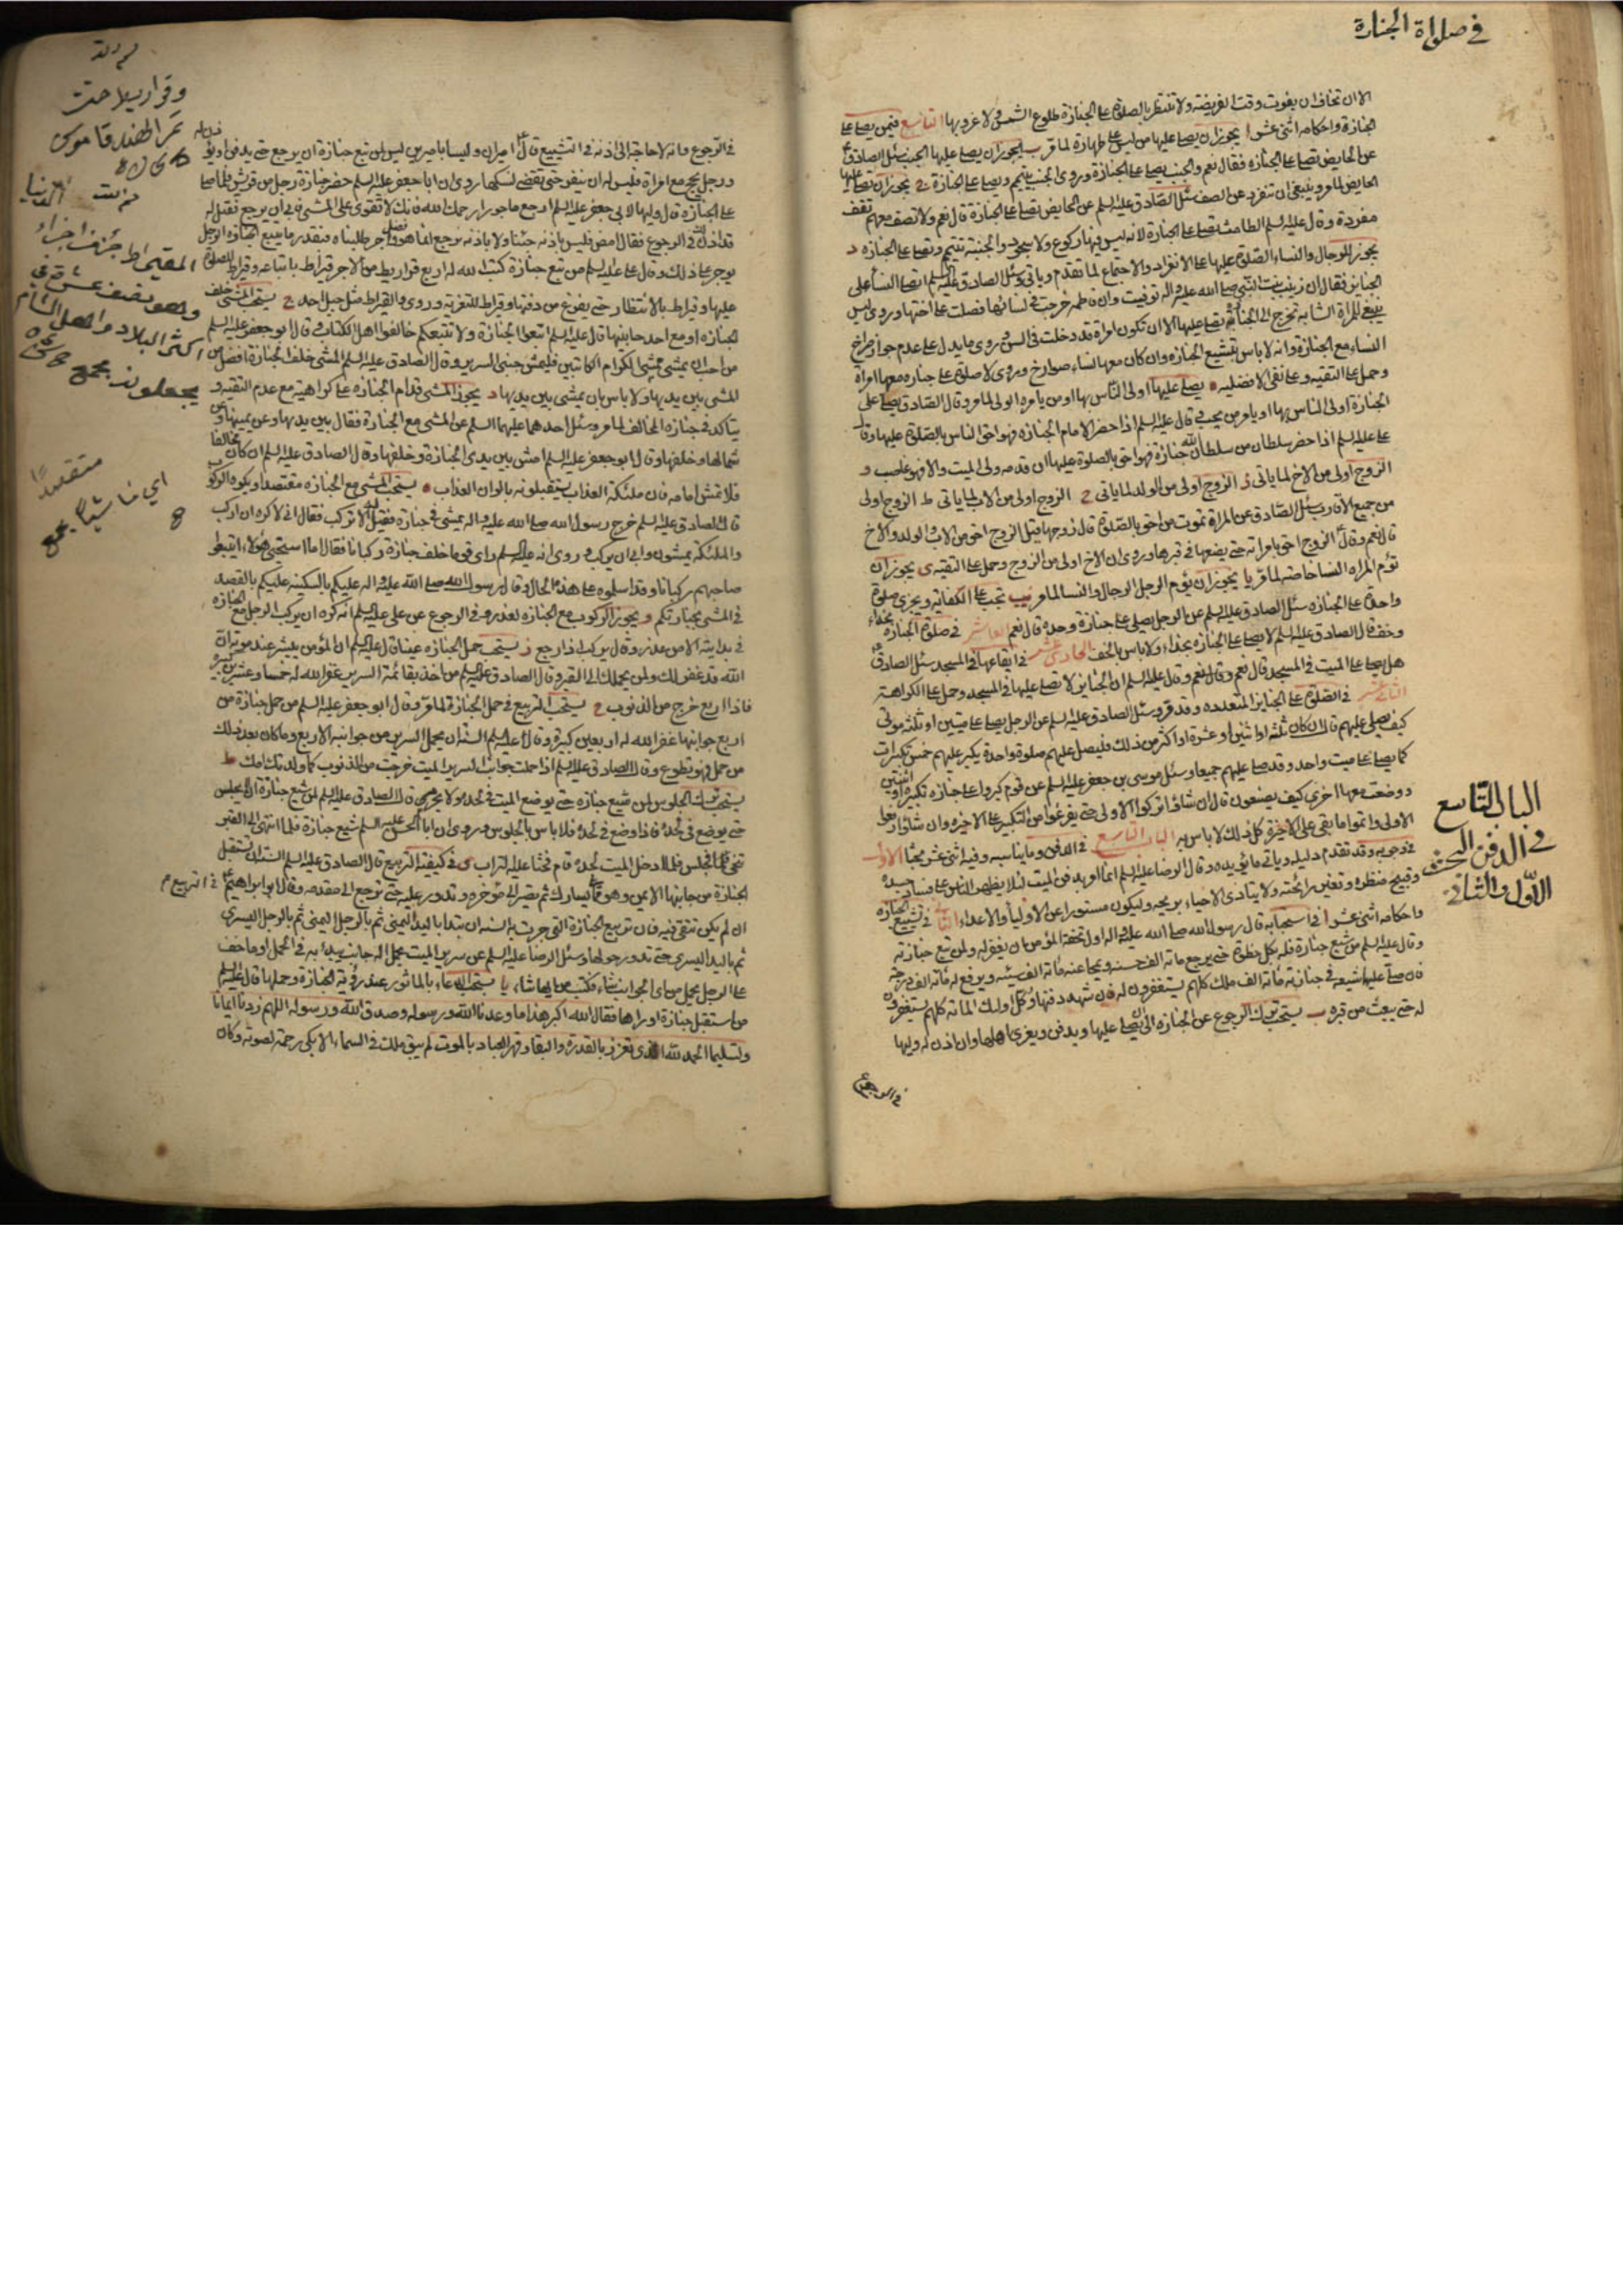 في صلواة الجنازة
الا ان تخاف ان يفوت وقت الفريضة ولا تنتظر بالصلوة على الجنازة طلوع الشمس ولا غروبها التاسع فيمن يصلي على
الجنازة واحكامه اثنى عشر ا يجوز ان يصلي عليها من ليس على طهارة لما مر ب يجوز ان يصلي عليها الجنب سئل الصادق ع
عن الحايض تصلي على الجنازة فقال نعم والجنب يصلي على الجنازة وروى الجنب يتيمم ويصلي على الجنازة ج يجوز ان تصلي عليها
الحايض لما مر وينبغي ان تنفرد عن الصف سئل الصادق عليه السلم عن الحايض تصلي على الجنازة قال نعم ولا تصف معهم تقف
مفردة وقال عليه السلم الطامث تصلي على الجنازة لانه ليس فيها ركوع ولا سجود والجنبة تتيمم وتصلي على الجنازة د
يجوز للرجال والنساء الصلوة عليها على الانفراد والاجتماع لما تقدم وياتي وسئل الصادق عليه السلم اتصلي النسأ على
الجنايز فقال ان زينب بنت النبي صلى الله عليه واله توفيت وان فاطمه خرجت في نسائها فصلت على اختها وروى ليس
ينبغي للمرأة الشابة تخرج الى الجنازة تصلي عليها الا ان تكون امراة قد دخلت في السن وروى ما يدل على عدم جواز خروج
النساء مع الجنازة وانه لا باس بتشييع الجنازه وان كان معها النساء صوارخ وروى لا صلوة على جنازه معها امراة
وحمل على التقيه وعلى نفي الافضليه ه يصلي عليها اولى الناس بها او من يامره الولي لما مر وقال الصادق يصلي على
الجنازة اولى الناس بها او يامر من يحب وقال عليه السلم اذا حضر الامام الجنازه فهو احق الناس بالصلوة عليها وقال
على عليه السلم اذا حضر سلطان من سلطان الله جنازة فهو احق بالصلوة عليها ان قدمه ولي الميت والا فهو غاصب و
الزوج اولى من الاخ لما ياتي ز الزوج اولى من الولد لما ياتي ح الزوج اولى من الاب لما ياتي ط الزوج اولى
من جميع الاقارب سئل الصادق عن المراة تموت من احق بالصلوة قال زوجها قيل الزوج احق من الاب والولد والاخ
قال نعم وقال الزوج احق بامراته حتى يضعها في قبرها وروى ان الاخ اولى من الزوج وحمل على التقيه ى يجوز ان
تؤم المراه النسا خاصة لما مر يا يجوز ان يؤم الرجل الرجال والنسا لما مر يب تجب على الكفاية ويجزي صلوة
واحدة على الجنازه سئل الصادق عليه السلم عن الرجل يصلي على جنازة وحده قال نعم العاشر في صلوة الجنازه بحذاء
وخف قال الصادق عليه السلم لا يصلى على الجنازة بحذاء ولا باس بالخف الحادي عشر في ايقاعها في المسجد سئل الصادق ع
هل يصلى على الميت في المسجد قال نعم وقال نعم وقال عليه السلم ان الجنايز لا تصلى عليها في المسجد وحمل على الكراهة
الثاني عشر في الصلوة على الجنايز المتعدده وقد مر وسئل الصادق عليه السلم عن الرجل يصلي على ميتين او ثلثه موتى
كيف يصلي عليهم قال ان كان ثلثه او اثنين او عشرة او اكثر من ذلك فليصل عليهم صلوة واحدة يكبر عليهم خمس تكبيرات
كما يصلي على ميت واحد وقد صلى عليهم جميعا وسئل موسى بن جعفر عليه السلم عن قوم كبروا على جنازه تكبيرة او اثنتين
ووضعت معها اخرى كيف يصنعون قال ان شاؤا تركوا الاولى حتى يفرغوا من التكبير على الاخيره وان شاؤا رفعوا
الاولى واتموا ما بقي على الاخيرة كل ذلك لا باس به الباب التاسع في الدفن وما يناسبه وفيه اثنى عشر مبحثا الاول
في وجوبه وقد تقدم دليله وياتي ما يؤيده وقال الرضا عليه السلم انما امر بدفن الميت لئلا يظهر الناس على فساد جسده
وقبيح منظره وتغير رائحته ولا يتاذى الاحياء بريحه وليكون مستورا عن الاولياء والاعداء الثاني في تشييع الجنازه
واحكامه اثنى عشر ا في استحبابه قال رسول الله صلى الله عليه واله اول تحفة المؤمن ان يغفر له ولمن تبع جنازته
وقال عليه السلم من شيع جنازة فله بكل خطوة حتى يرجع ماته الف حسنه ويمحا عنه ماته الف سيئه ويرفع له ماته الف درجة
فان صلى عليها شيعه في جنازته ماته الف ملك كلهم يستغفرون له فان شهد دفنها وكل اولئك الماته كلهم يستغفرون
له حتى يبعث من قبره ب يستحب ترك الرجوع عن الجنازه الى ان يصلى عليها ويدفن ويعزى اهلها وان اذن له وليها
الباب التاسع
في الدفن البحث
الاول والثاني
في الرجوع وانه لا حاجة الى اذنه في التشييع قال ع اميران وليسا باميرين ليس لمن تبع جنازة ان يرجع حتى يدفن او يؤذن له
ورجل يحج مع امراة فليس له ان ينفر حتى تقضي نسكها روى ان ابا جعفر عليه السلم حضر جنازة رجل من قريش فلما صلى
على الجنازة قال وليها لابي جعفر عليه السلم ارجع ماجورا رحمك الله فانك لا تقوى على المشي فابى ان يرجع فقيل له
قد اذن لك في الرجوع فقال امض فليس باذنه جئنا ولا باذنه نرجع انما هو فضل واجر طلبناه فبقدر ما يتبع الجنازه الرجل
يوجر على ذلك وقال على عليه السلم من تبع جنازة كتب الله له اربع قراريط من الاجر قيراط باتباعه وقيراط للصلوة
عليها وقيراط بالانتظار حتى يفرغ من دفنها وقيراط للتعزية وروى القيراط مثل جبل احد ج يستحب المشي خلف
الجنازه او مع احد جانبيها قال عليه السلم اتبعوا الجنازة ولا تتبعكم خالفوا اهل الكتاب وقال ابو جعفر عليه السلم
من احب ان يمشي ممشى الكرام الكاتبين فليمش جنبي السرير وقال الصادق عليه السلم المشي خلف الجنازة افضل من
المشي بين يديها ولا باس بان يمشي بين يديها د يجوز المشي قدام الجنازه على كراهية مع عدم التقيه و
يتاكد في جنازة المخالف لما مر وسئل احدهما عليهما السلم عن المشي مع الجنازة فقال بين يديها وعن يمينها وعن
شمالها وخلفها وقال ابو جعفر عليه السلم امش بين يدي الجنازة وخلفها وقال الصادق عليه السلم ان كان مخالفا
فلا تمش امامه فان ملئكة العذاب يستقبلونه بالوان العذاب ه يستحب المشي مع الجنازه مقتصدا ويكره الركوب
قال الصادق عليه السلم خرج رسول الله صلى الله عليه واله يمشي في جنازة فقيل له الا تركب فقال اني لاكره ان اركب
والملئكة يمشون وابى ان يركب وروى انه عليه السلم راى قوما خلف جنازة ركبانا فقال اما استحيى هؤلاء ان يتبعوا
صاحبهم ركبانا وقد اسلموه على هذه الحال وقال رسول الله صلى الله عليه واله عليكم بالسكينه عليكم بالقصد
في المشي بجنازتكم و يجوز الركوب مع الجنازه لعذر وفي الرجوع عن علي عليه السلم انه كره ان يركب الرجل مع الجنازه
في بدايته الا من عذر وقال يركب اذا رجع ز يستحب حمل الجنازه عينا قال عليه السلم ان المؤمن يبشر عند موته ان
الله قد غفر لك ولمن يحملك الى القبر وقال الصادق عليه السلم من اخذ بقائمة السرير غفر الله له خمسا وعشرين كبيرة
فاذا اربع خرج من الذنوب ح يستحب التربيع في حمل الجنازة لما مر وقال ابو جعفر عليه السلم من حمل جنازة من
اربع جوانبها غفر الله له اربعين كبيرة وقال عليه السلم السنة ان يحمل السرير من جوانبه الاربع وما كان بعد ذلك
من حمل فهو تطوع وقال الصادق عليه السلم اذا حملت جوانب السرير الميت خرجت من الذنوب كما ولدتك امك ط
يستحب ترك الجلوس لمن شيع جنازه حتى يوضع الميت في لحده ولا يحرم قال الصادق عليه السلم لمن شيع جنازة ان لا يجلس
حتى يوضع في لحده فاذا وضع في لحده فلا باس بالجلوس وروى ان ابا الحسن عليه السلم شيع جنازة فلما انتهى الى القبر
تنحى فجلس فلما ادخل الميت لحده قام فحثا عليه التراب ى في كيفية التربيع قال الصادق عليه السلم السنة ان تستقبل
الجنازة من جانبها الايمن وهو مما يلي يسارك ثم تصير الى مؤخره وتدور عليه حتى ترجع الى مقدمه وقال ابو ابراهيم ع في التربيع
ان لم يكن تتقي فيه فان تربيع الجنازة التي جرت به السنه ان يبتدأ باليد اليمنى ثم بالرجل اليمنى ثم بالرجل اليسرى
ثم باليد اليسرى حتى تدور حولها وسئل الرضا عليه السلم عن سرير الميت يحمل اله جانب يبدء به في الحمل او ما خف
على الرجل يحمل من اي الجوانب شاء فكتب من ايها شاء يا يستحب الدعاء بالماثور عند رؤية الجنازة وحملها قال عليه السلم
من استقبل جنازة او راها فقال الله اكبر هذا ما وعدنا الله ورسوله وصدق الله ورسوله اللهم زدنا ايمانا
وتسليما الحمد لله الذي تعزز بالقدرة والبقاء وقهر العباد بالموت لم يبق ملك في السماء الا بكى رحمة لصوته وكان
متقصدا
اي ماشيا
اكثر البلاد واهل الشام
يجعلونه